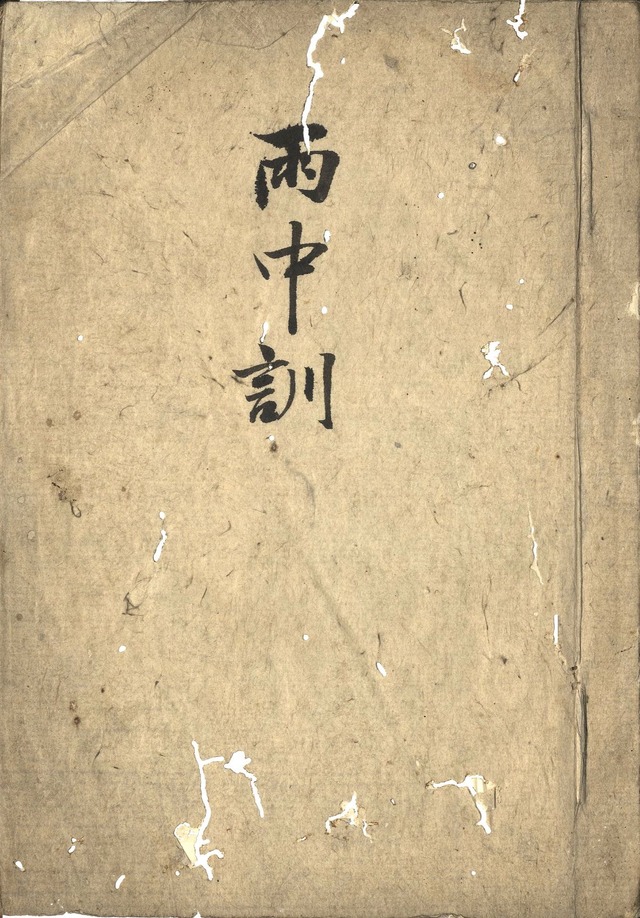 雨中訓